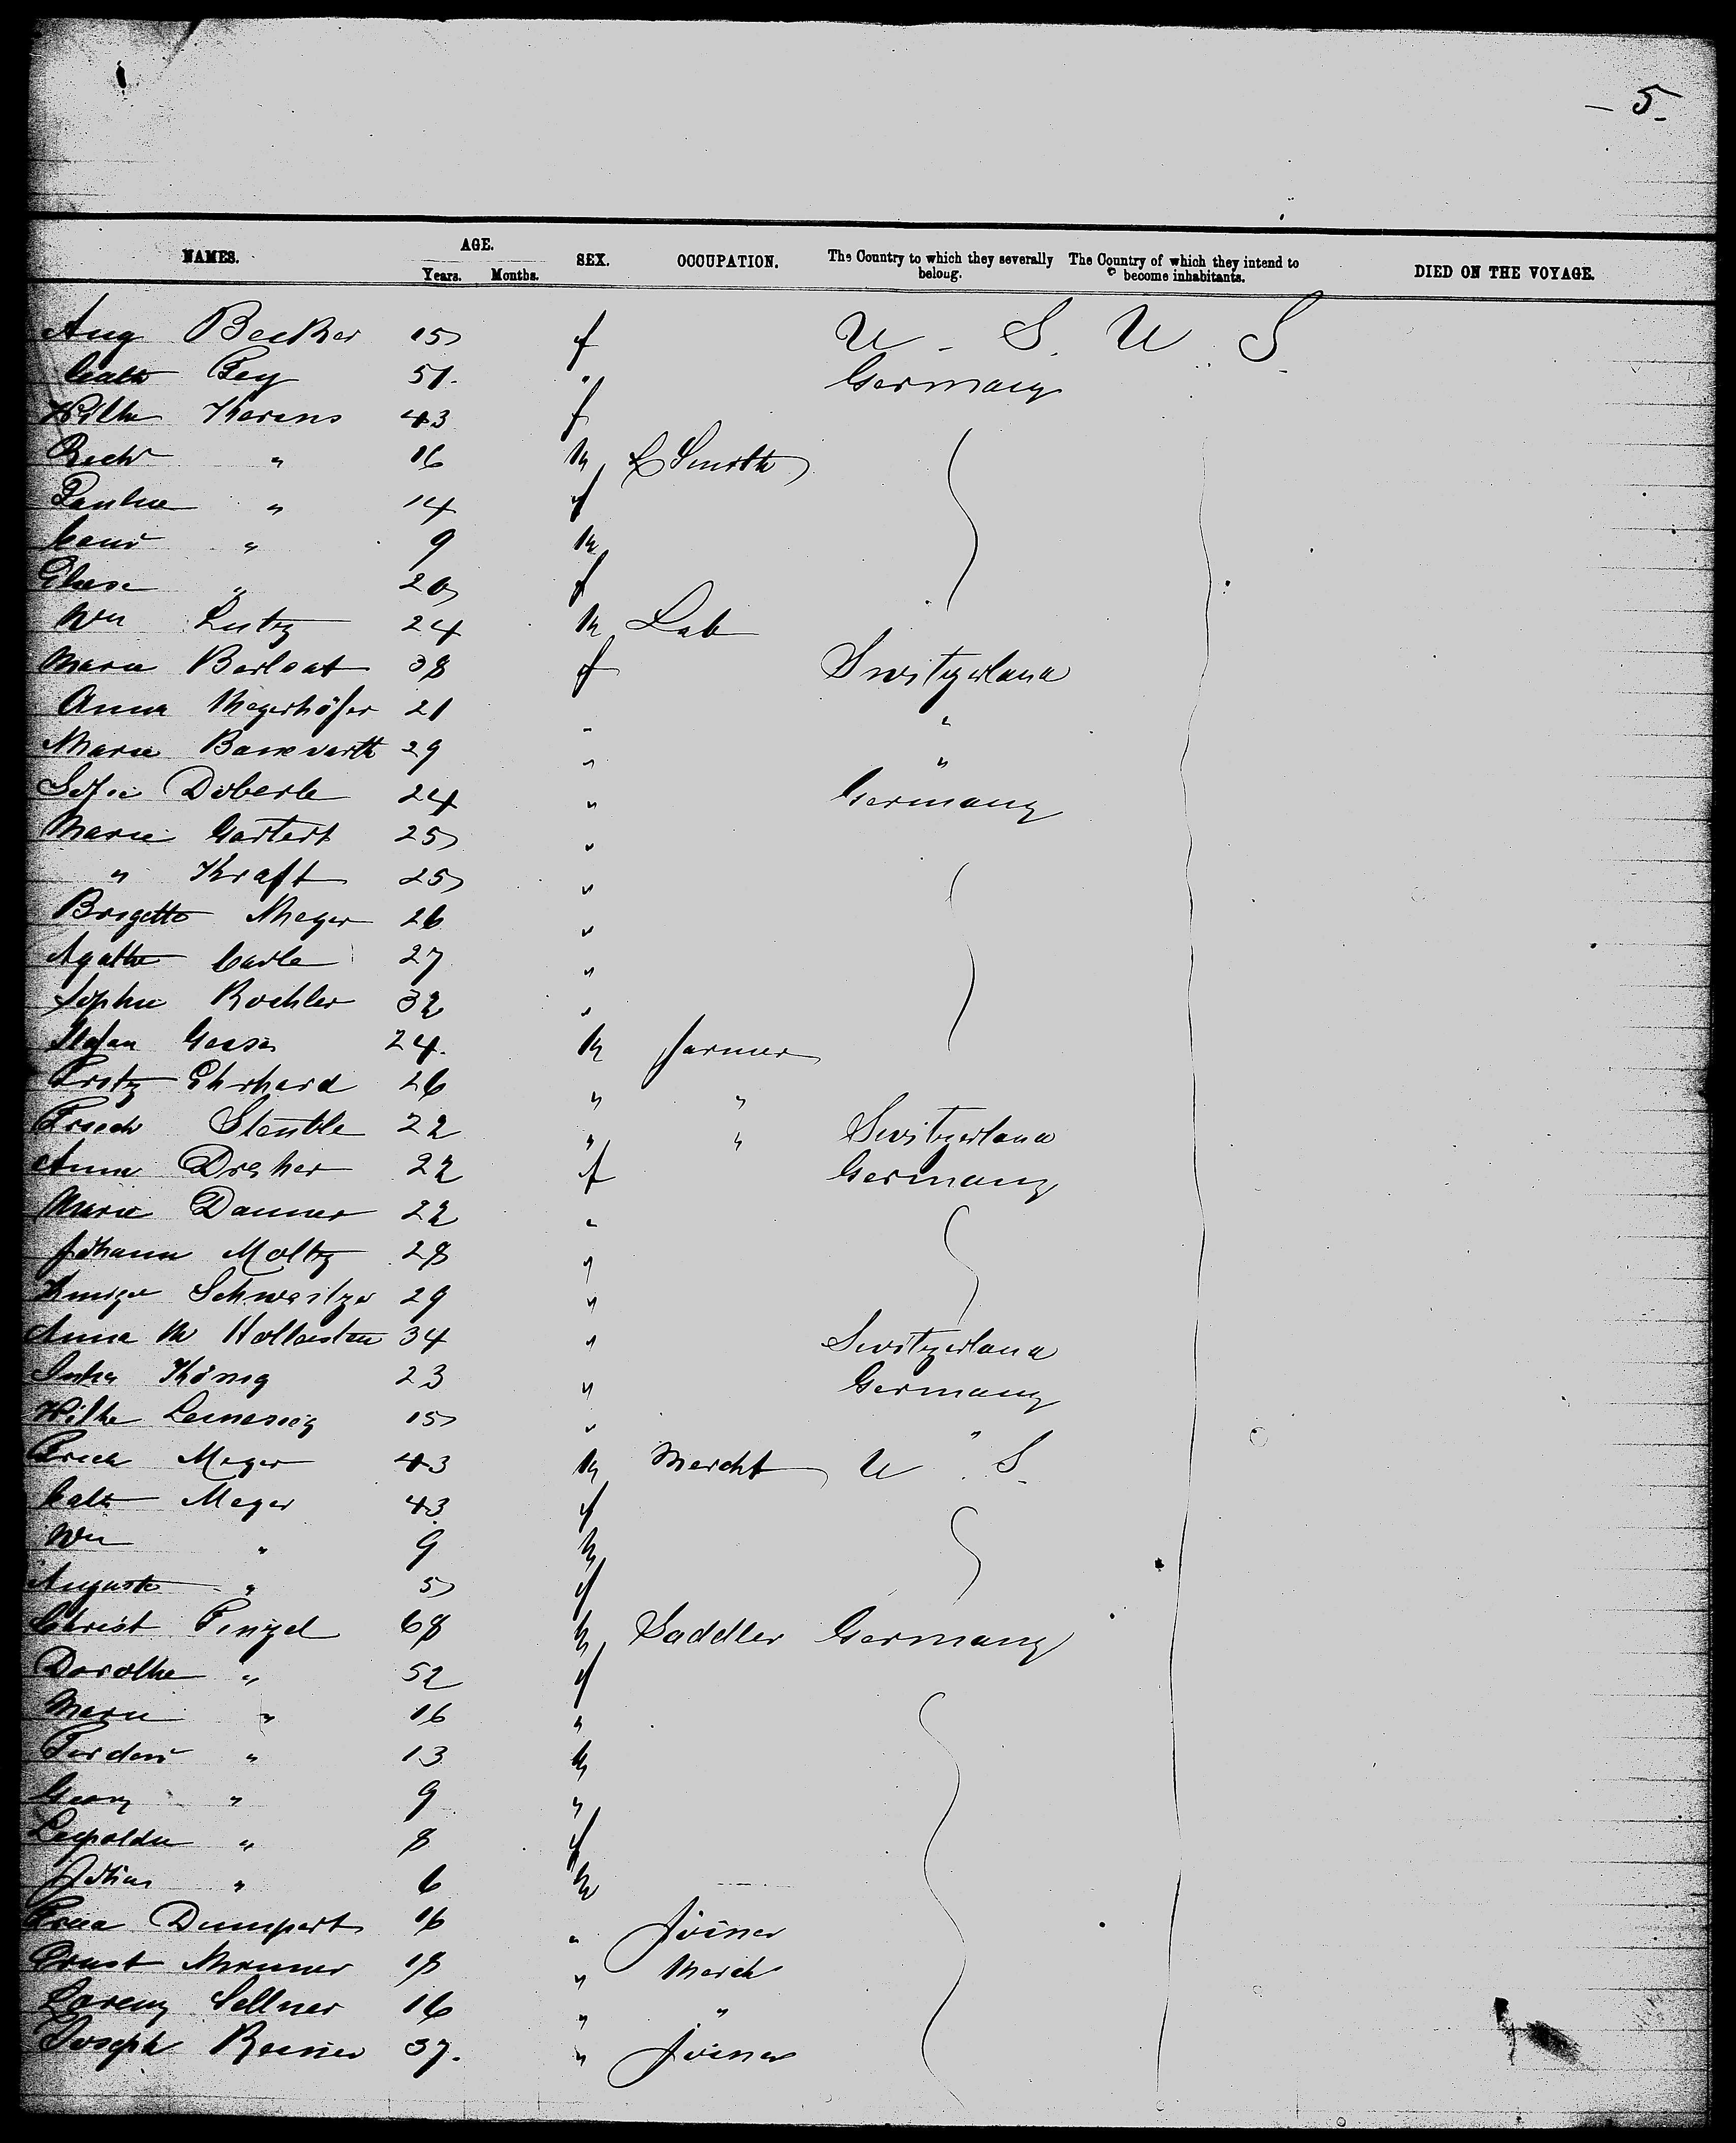 - 5 -
NAMES. AGE. Years. Months. SEX. OCCUPATION. The Country to which they severally belong. The Country of which they intend to become inhabitants. DIED ON THE VOYAGE.
Aug Becker 15 f U. S. U. S.
Cath Bey 51. " Germany
Wilhe Karens 43 f
Rich " 16 m L Smith
Pauline " 14 f
" 9 m
Elise " 20 f
Wm Lutz 24 m Lab
Marie Berleat 38 f Switzerland
Anna Mayerhöfer 21 " "
Marie Bannwarth 29 " "
Sofie Doberle 24 " Germany
Marie Gartert 25 "
" Kraft 25 "
Brigette Meyer 26 "
Agathe Carle 27 "
Sophie Rochler 32 "
Stefan 24. m farmer
Fritz Ehrhard 26 " "
Friedr Stenble 22 " " Switzerland
Anna Dreher 22 f Germany
Marie Danner 22 "
Johann Moltz 28 "
Schwartzer 29 "
Anna M 34 " Switzerland
König 23 " Germany
Wilhe 15 " "
Fried Meyer 43 m Mercht U. S.
Cath Meyer 43 f
Wm " 9 m
Auguste " 5 f
Christ Pinzel 68 m Saddler Germany
Dorothe " 52 f
Marie " 16 "
Ferdin " 13 m
Georg " 9 "
Leopoldn " 8 f
" 6 m
Dumpert 16 " Joiner
Ernst 18 " Merch
Lorenz Sellner 16 " "
Joseph Reiner 37. " Joiner